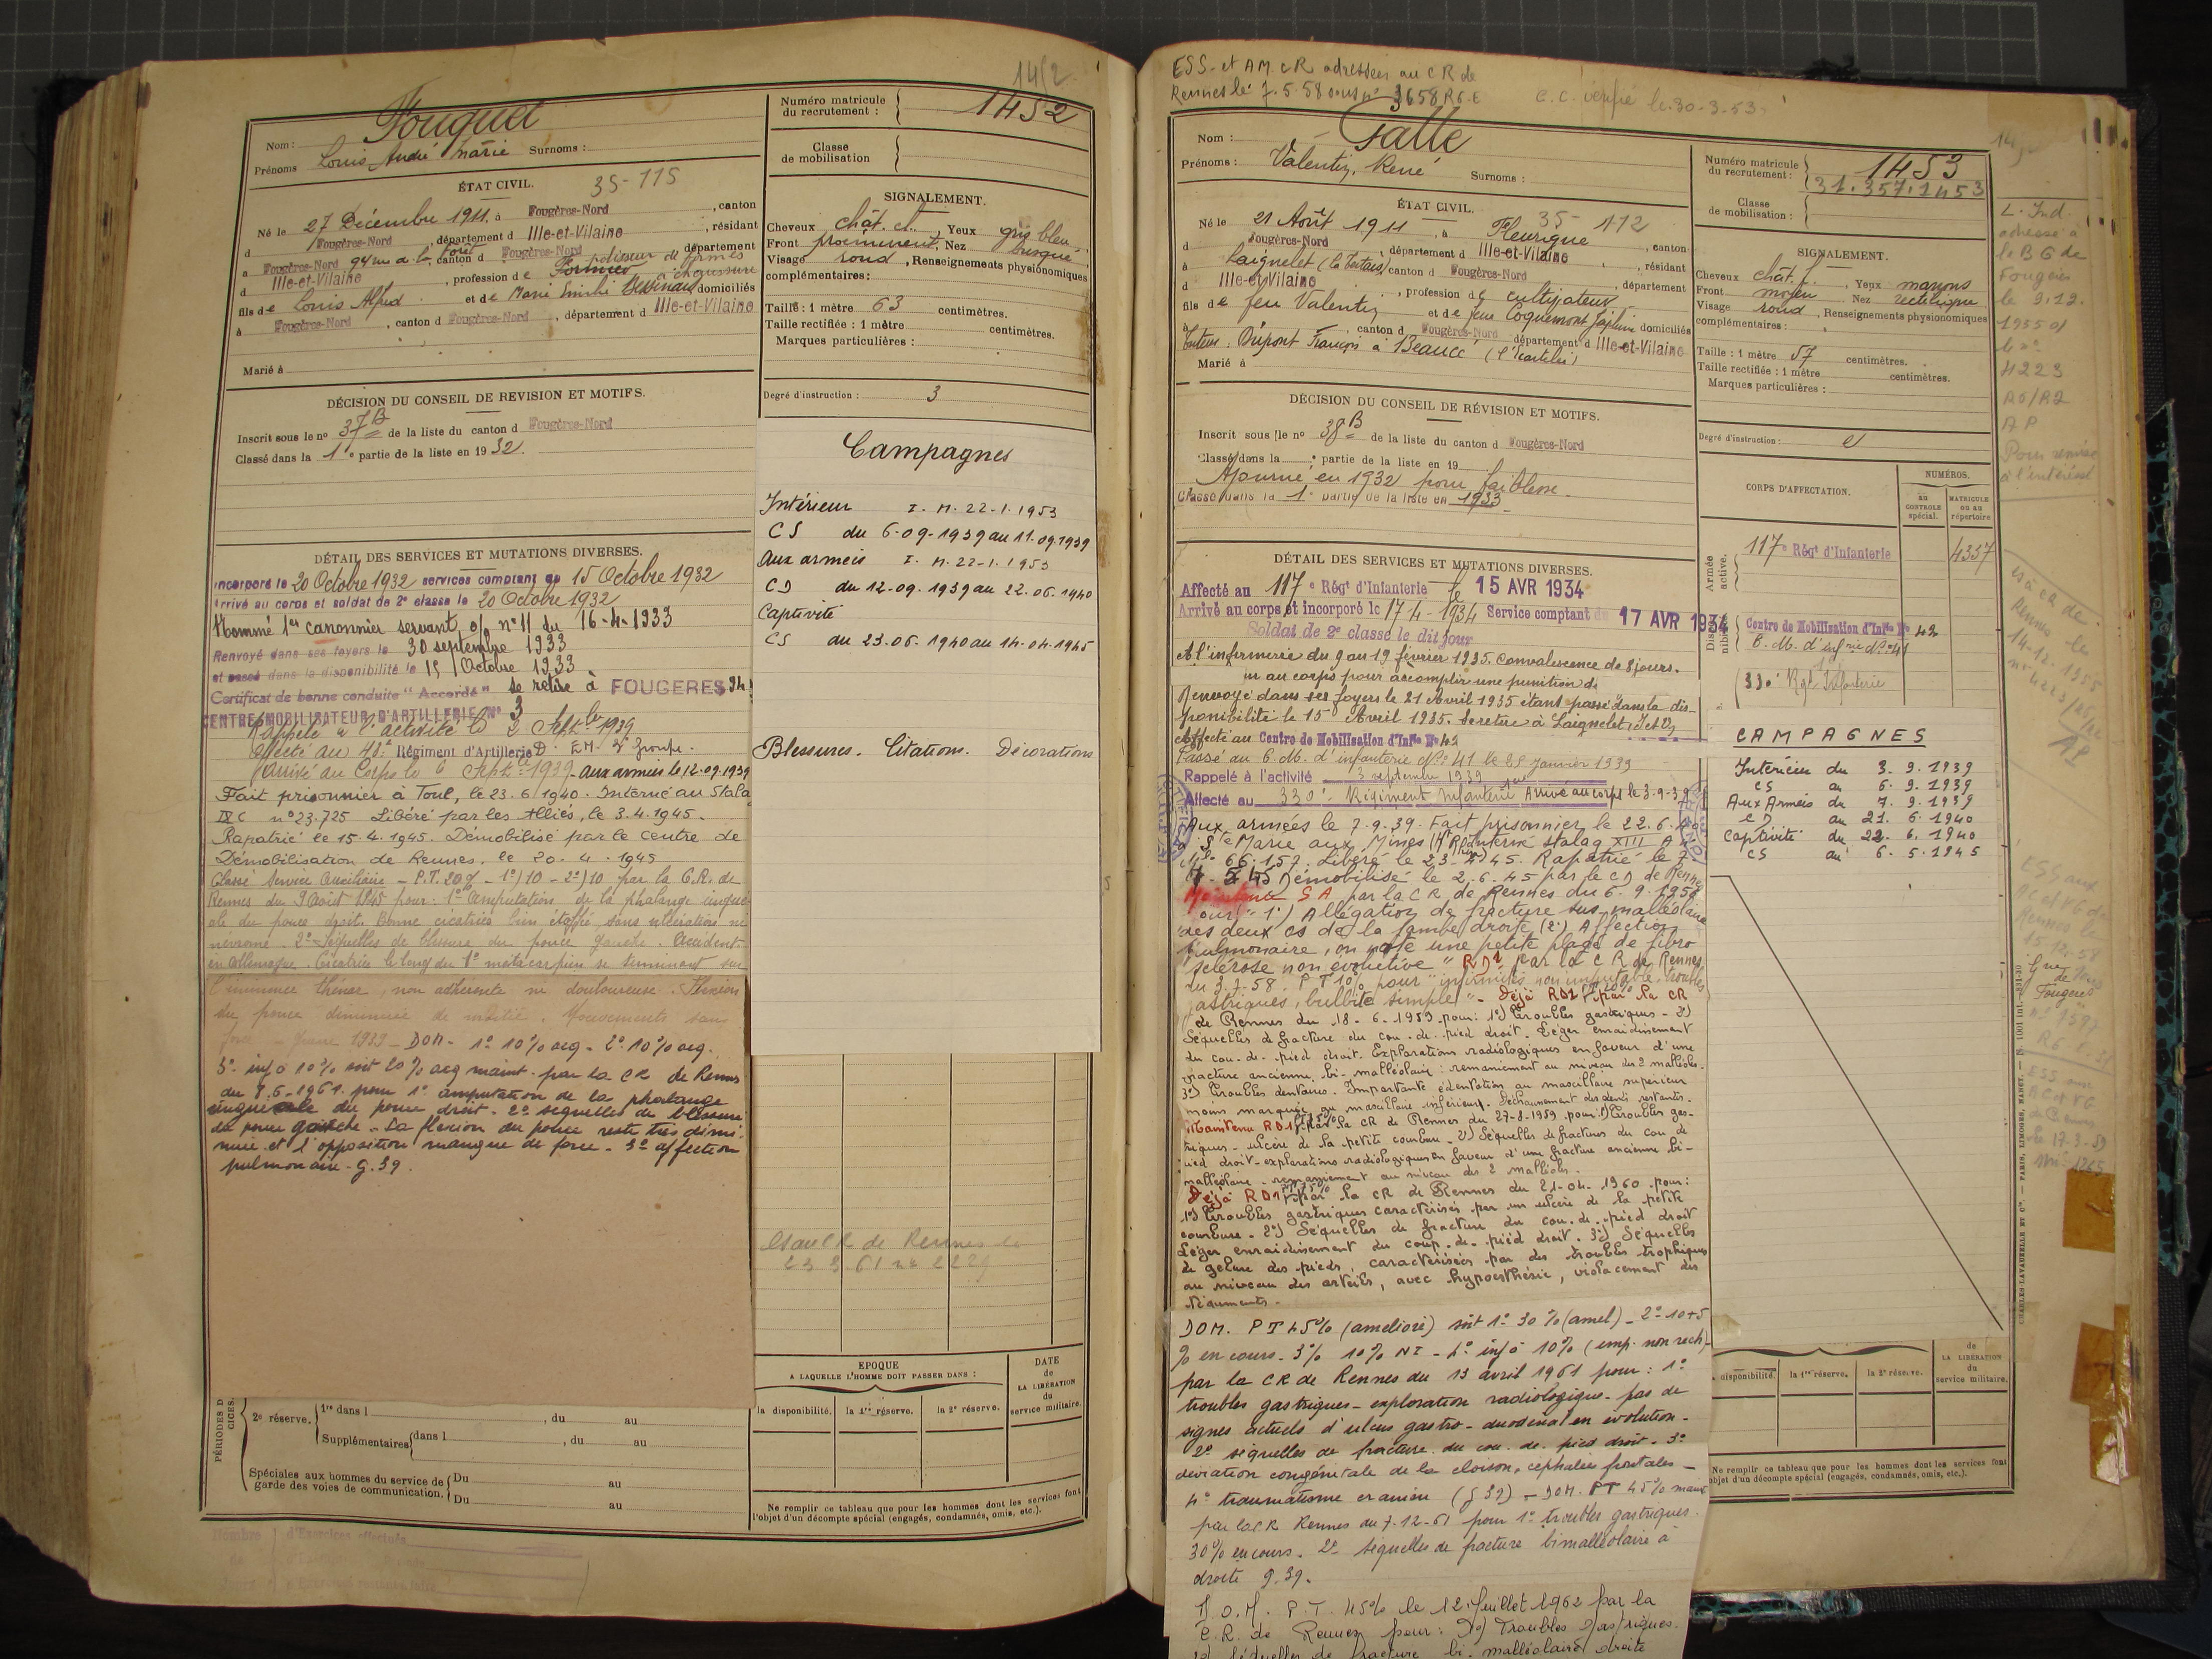 1452
Fouquet
Nom :
Prénoms Louis André Marie Surnoms :
ÉTAT CIVIL. 35-115
Né le 27 Décembre 1911. à Fougères-Nord , canton
d Fougères-Nord , département d Ille-et-Vilaine , résidant
à Fougères-Nord 94 rue de la Forêt , canton d Fougères-Nord département
d Ille-et-Vilaine , profession de polisseur de formes à chaussures
fils de Louis Alfred et de Marie domiciliés
à Fougères-Nord , canton d Fougères-Nord , département d Ille-et-Vilaine
Marié à
DÉCISION DU CONSEIL DE REVISION ET MOTIFS.
Inscrit sous le no 37 B de la liste du canton d Fougères-Nord
Classé dans la 1e partie de la liste en 1932.
DÉTAIL DES SERVICES ET MUTATIONS DIVERSES.
Incorporé le 20 Octobre 1932 services comptant du 15 Octobre 1932
Arrivé au corps et soldat de 2e classe le 20 Octobre 1932
Nommé 1er canonnier servant o/ n° 11 du 16-4-1933
Renvoyé dans ses foyers le 30 septembre 1933
et passé dans la disponibilité le 15 Octobre 1933
Certificat de bonne conduite "Accordé" se retire à FOUGERES 94
CENTRE MOBILISATEUR D'ARTILLERIE N° 3
Rappelé à l'activité le 2 Septbre 1939
affecté au 43e Régiment d'Artillerie D. EM. 2e Groupe.
Arrivé au Corps le 6 Septbre 1939 - aux armées le 12.09.1939
Fait prisonnier à Toul, le 23.6.1940. Interné au Stala
IX C n° 23.725 Libéré par les Alliés, le 3.4.1945.
Rapatrié le 15.4.1945. Démobilisé par le centre de
Démobilisation de Rennes. le 20.4.1945
Classé Service Auxiliaire - P.T. 20% - 1°) 10 - 2°) 10 par la C.R. de
Rennes du 9 Août 1945 pour : 1° Amputation de la phalange unguéale
du pouce droit. Bonne cicatrice bien étoffée, sans ulcération ni
névrome. 2° Séquelles de blessure du pouce gauche. Accident
en Allemagne. Cicatrice le long du 1° métacarpien se terminant sur
l'éminence thénar, non adhérente ni douloureuse. Flexion
du pouce diminuée de moitié. Mouvements sans
force - guerre 1939 - DOM - 1° 10% aeg - 2° 10% aeg.
3° info 10% soit 20% aeg maint. par la CR de Rennes
du 8.6.1961. pour 1° amputation de la phalange
unguéale du pouce droit. 2° séquelles de blessure
du pouce gauche - La flexion du pouce reste très dimi-
nuée et l'opposition manque de force - 3° affection
pulmonaire - G.39.
PÉRIODES D
CICES.
2e réserve.
1re dans l , du au
Supplémentaires dans l , du au
Spéciales aux hommes du service de garde des voies de communication.
Du au
Du au
Numéro matricule du recrutement : 1452
Classe de mobilisation
SIGNALEMENT.
Cheveux chât. cl. , Yeux gris bleu
Front proéminent , Nez busqué
Visage rond , Renseignements physionomiques
complémentaires :
Taille : 1 mètre 63 centimètres.
Taille rectifiée : 1 mètre centimètres.
Marques particulières :
Degré d'instruction : 3
Campagnes
Intérieur I. M. 22-1.1953
CS du 6-09-1939 au 11.09.1939
Aux armées I. M. 22-1.1953
CD du 12.09.1939 au 22.06.1940
Captivité
CS du 23.06.1940 au 14.04.1945
Blessures. Citations. Décorations
CR de Rennes le
EPOQUE
A LAQUELLE L'HOMME DOIT PASSER DANS :
DATE de LA LIBÉRATION du service militaire.
la disponibilité. la 1re réserve. la 2e réserve.
Ne remplir ce tableau que pour les hommes dont les services font
l'objet d'un décompte spécial (engagés, condamnés, omis, etc.).
ESS. et AM. CR adressées au CR de
Rennes le 7.5.58 sous n° 3658 R6.E
C.C. vérifié le 30-3-53
Nom : Galle
Prénoms : Valentin, René Surnoms :
ÉTAT CIVIL. 35-112
Né le 21 Août 1911 , à Fleurigné , canton
d Fougères-Nord , département d Ille-et-Vilaine , résidant
à Laignelet (le Tertais) canton d Fougères-Nord , département
d Ille-et-Vilaine , profession de cultivateur
fils de feu Valentin et de feue Coquemont Joséphine domiciliés
à , canton d Fougères-Nord département d Ille-et-Vilaine
Tuteur : Dupont François à Beaucé (l'Ecartelée)
Marié à
DÉCISION DU CONSEIL DE RÉVISION ET MOTIFS.
Inscrit sous le no 38 B de la liste du canton d Fougères-Nord
Classé dans la e partie de la liste en 19
Ajourné en 1932 pour faiblesse.
Classé dans la 1e partie de la liste en 1933
DÉTAIL DES SERVICES ET MUTATIONS DIVERSES.
Affecté au 117e Régt d'Infanterie le 15 AVR 1934
Arrivé au corps et incorporé le 17-4-1934 Service comptant du 17 AVR 1934
Soldat de 2e classe le dit jour
A l'infirmerie du 9 au 19 février 1935. Convalescence de 8 jours.
m au corps pour accomplir une punition de
Renvoyé dans ses foyers le 21 Avril 1935 étant passé dans la dis-
ponibilité le 15 Avril 1935. Se retire à Laignelet, I et V,
Affecté au Centre de Mobilisation d'Inf. N° 42
Passé au C.M. d'infanterie N° 41 le 25 Janvier 1939
Rappelé à l'activité 3 septembre 1939
Affecté au 330e Régiment Infanterie Arrivé au corps le 3-9-39
Aux armées le 7.9.39. Fait prisonnier le 22.6.40
à Ste Marie aux Mines (Ht Rhin) Interné stalag XIII A
N° 66.157. Libéré le 23.4.45. Rapatrié le 7.
5.45 Démobilisé le 2.6.45 par le CD de Rennes
Maintenu SA par la CR de Rennes du 6.9.1950
pour : "1°) Allégation de fracture sus malléolaire
des deux os de la jambe droite (2°) Affection
pulmonaire, on note une petite plage de fibro
sclérose non évolutive" RD1 par la CR de Rennes
du 3.7.58. PT 10% pour "infirmités non imputable, troubles
gastriques, bulbite simple" - Déjà RD1 par la CR
de Rennes du 18-6-1959 pour : 1°) troubles gastriques - 2°)
Séquelles de fracture du cou-de-pied droit. Léger enraidissement
du cou-de-pied droit. Explorations radiologiques en faveur d'une
fracture ancienne bi-malléolaire : remaniement au niveau des 2 malléoles.
3°) Troubles dentaires. Importante édentation au maxillaire supérieur
moins marquée au maxillaire inférieur. Déchaussement des dents restantes.
Maintenu RD1 par la CR de Rennes du 27-8-1959 pour : 1°) troubles gas-
triques - ulcère de la petite courbure - 2°) Séquelles de fractures du cou de
pied droit - explorations radiologiques en faveur d'une fracture ancienne bi-
malléolaire - remaniement au niveau des 2 malléoles.
Déjà RD1 par la CR de Rennes du 21-04-1960 pour :
1°) troubles gastriques caractérisés par un ulcère de la petite
courbure - 2°) Séquelles de fracture du cou-de-pied droit
Léger enraidissement du coup-de-pied droit. 3°) Séquelles
de gelure des pieds, caractérisées par des troubles trophiques
au niveau des orteils, avec hypoesthésie, violacement des
téguments.
DOM. PT 45% (amélioré) soit 1° 30% (amel) - 2° 10+5
% en cours - 3% 10% NI - 4° info 10% (imp. non rech)
par la CR de Rennes du 13 avril 1961 pour : 1°
troubles gastriques - exploration radiologique - pas de
signes actuels d'ulcus gastro-duodénal en évolution -
2° séquelles de fracture du cou-de-pied droit - 3°
déviation congénitale de la cloison, céphalées frontales -
4° traumatisme cranien (g 39) - DOM. PT 45% maint
par la CR Rennes du 7-12-61 pour 1° troubles gastriques.
30% en cours. 2° séquelles de fracture bimalléolaire à
droite g.39.
D.O.M. P.T. 45% le 12 Juillet 1962 par la
C.R. de Rennes pour : 1°) Troubles gastriques.
2°) Séquelles de fracture bi-malléolaire droite
Numéro matricule du recrutement : 1453
31.357.1453
Classe de mobilisation :
SIGNALEMENT.
Cheveux chât. f. , Yeux marrons
Front moyen , Nez rectiligne
Visage rond , Renseignements physionomiques
complémentaires :
Taille : 1 mètre 57 centimètres.
Taille rectifiée : 1 mètre centimètres.
Marques particulières :
Degré d'instruction : 2
CORPS D'AFFECTATION.
NUMÉROS.
AU CONTROLE spécial.
MATRICULE ou au répertoire
Armée active.
117e Régt d'Infanterie 4337
Centre de Mobilisation d'Inf. N° 42
C.M. d'infrie N° 41
330e Rgt Infanterie
CAMPAGNES
Intérieur du 3.9.1939
CS au 6.9.1939
Aux Armées du 7.9.1939
CD au 21.6.1940
Captivité du 22.6.1940
CS au 6.5.1945
disponibilité. la 1re réserve. la 2e réserve.
de LA LIBÉRATION du service militaire.
Ne remplir ce tableau que pour les hommes dont les services font
objet d'un décompte spécial (engagés, condamnés, omis, etc.).
L. Ind.
adressé à
le BG de
Fougères
le 9.12.
1955 s/
le n°
4223
AP
Pour remise
à l'intéressé
CHARLES-LAVAUZELLE ET Cie. — PARIS, LIMOGES, NANCY.